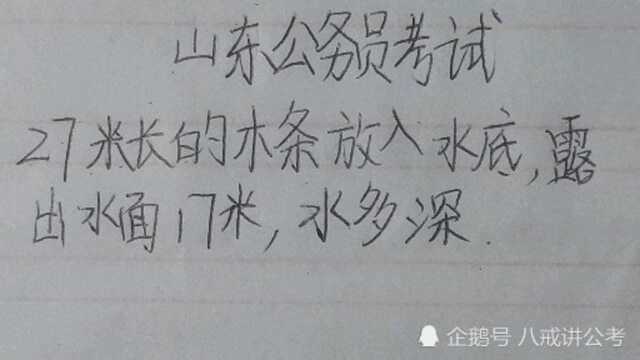 山东公务员考试
27米长的木条放入水底,露
出水面17米,水多深.
企鹅号 八戒讲公考